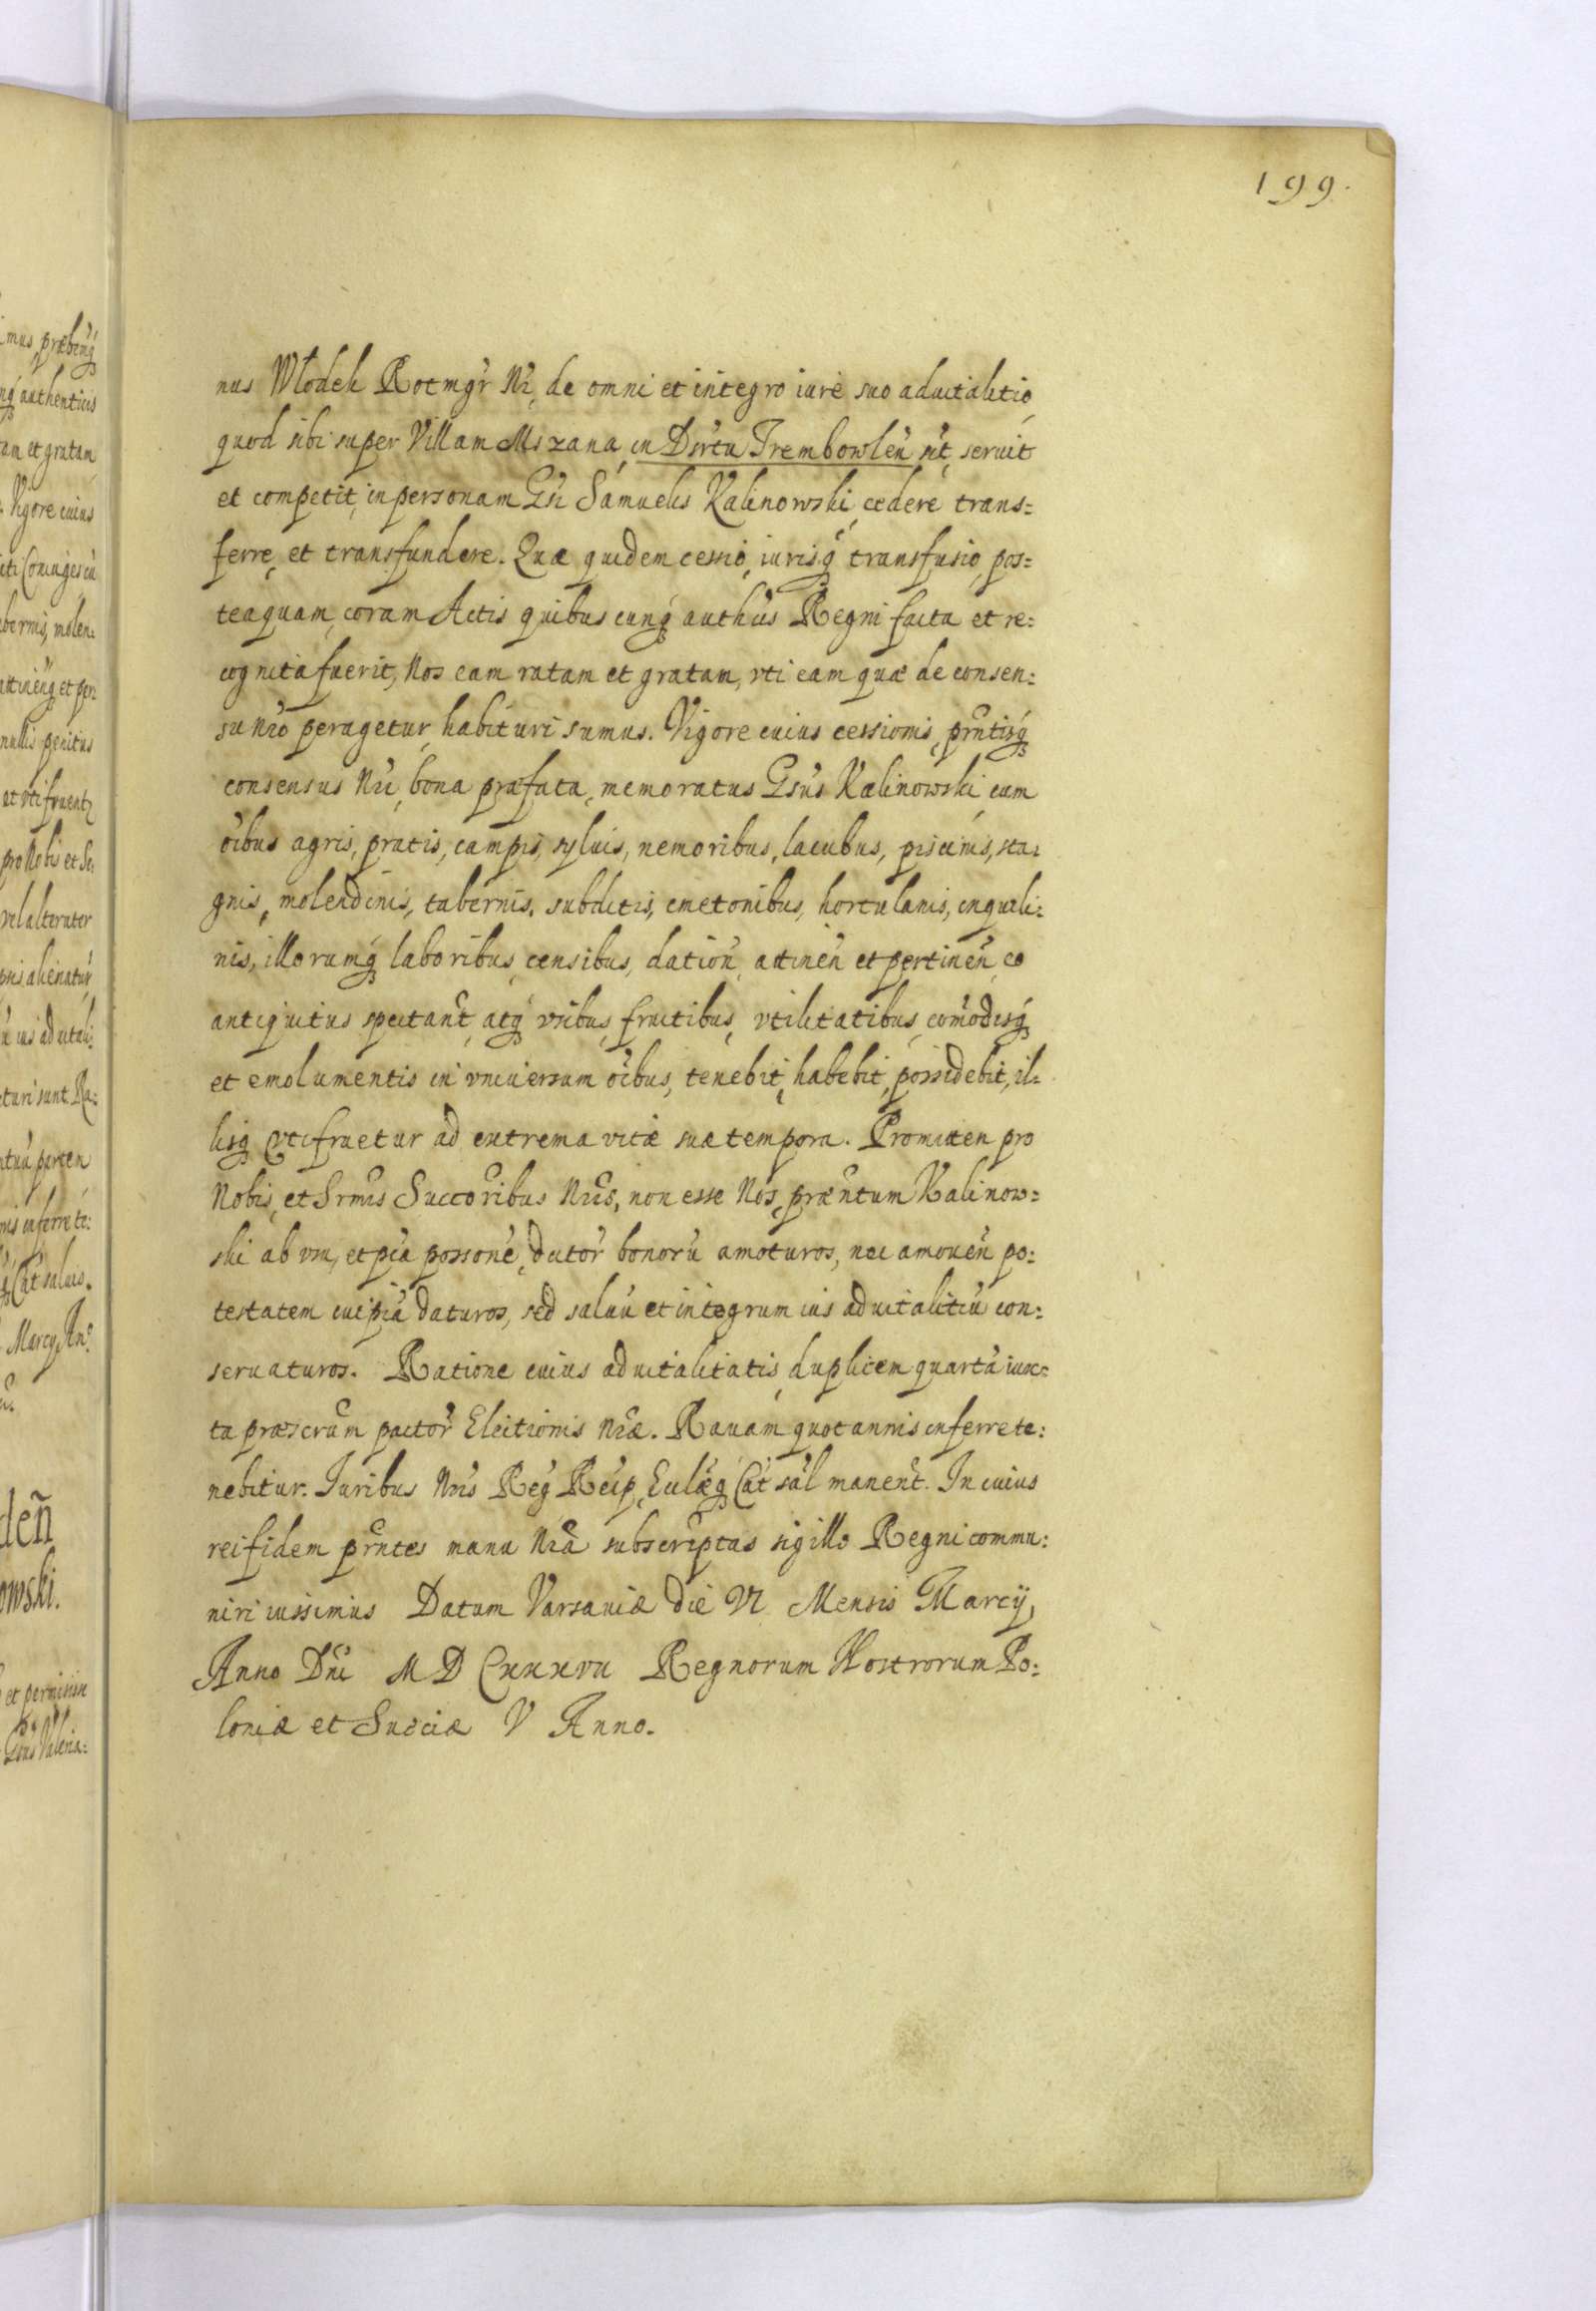 199.
nus Włodek Rotmgr Nr̃, de omni et integro iure suo aduitalitio,
quod sibi super Villam Mszana, in Dsrtu Trembowleñ sit, seruit
et competit, in personam Gsi Samuelis Kalinowski, cedere trans=
ferre, et transfundere. Quæ quidem cessio, iurisq́ transfusio, pos=
teaquam, coram Actis quibuscunq́ authcis Regni facta et re:
cognita fuerit, Nos eam ratam et gratam, vti eam quæ de consen:
su nr̃o peragetur, habituri sumus. Vigore cuius cessionis, prñtisq́
consensus Nr̃i, bona præfata, memoratus Gsus Kalinowski cum
oĩbus agris, pratis, campis, syluis, nemoribus, lacubus, piscinis, sta:
gnis, molendinis, tabernis, subditis, cmetonibus, hortulanis, inquili:
nis, illorumq́ laboribus, censibus, datioñ, attineñ et pertineñ, eo
antiquitus spectant̃, atq́ vsibus, fructibus, vtilitatibus, com̃odisq́
et emolumentis in vniuersum oĩbus, tenebit, habebit, possidebit, il=
lisq́ vtifruetur ad extrema vitæ suæ tempora. Promitten pro
Nobis, et Srm̃is Succoribus Nr̃is, non esse Nos, præntum Kalinow=
ski ab vsu, et pĩa possone, dictor̃ bonorũ amoturos, nec amoueñ po:
testatem cuipiã daturos, sed saluũ et integrum ius aduitalitiũ con:
seruaturos. Ratione cuius aduitalitatis, duplicem quartã iux=
ta præscrũm pactor̃ Electionis Nr̃æ. Rauam quotannis inferre te:
nebitur. Iuribus Nr̃is Reg̃ Reip, Ecclæq́ Cat̃ sal̃ manent̃. In cuius
rei fidem prñtes manu Nr̃a subscriptas sigillo Regni commu:
niri iussimus Datum Varsauiæ die VI Mensis Marcij,
Anno Dñi M D CxxxvII Regnorum Nostrorum Po:
loniæ et Sueciæ V Anno.